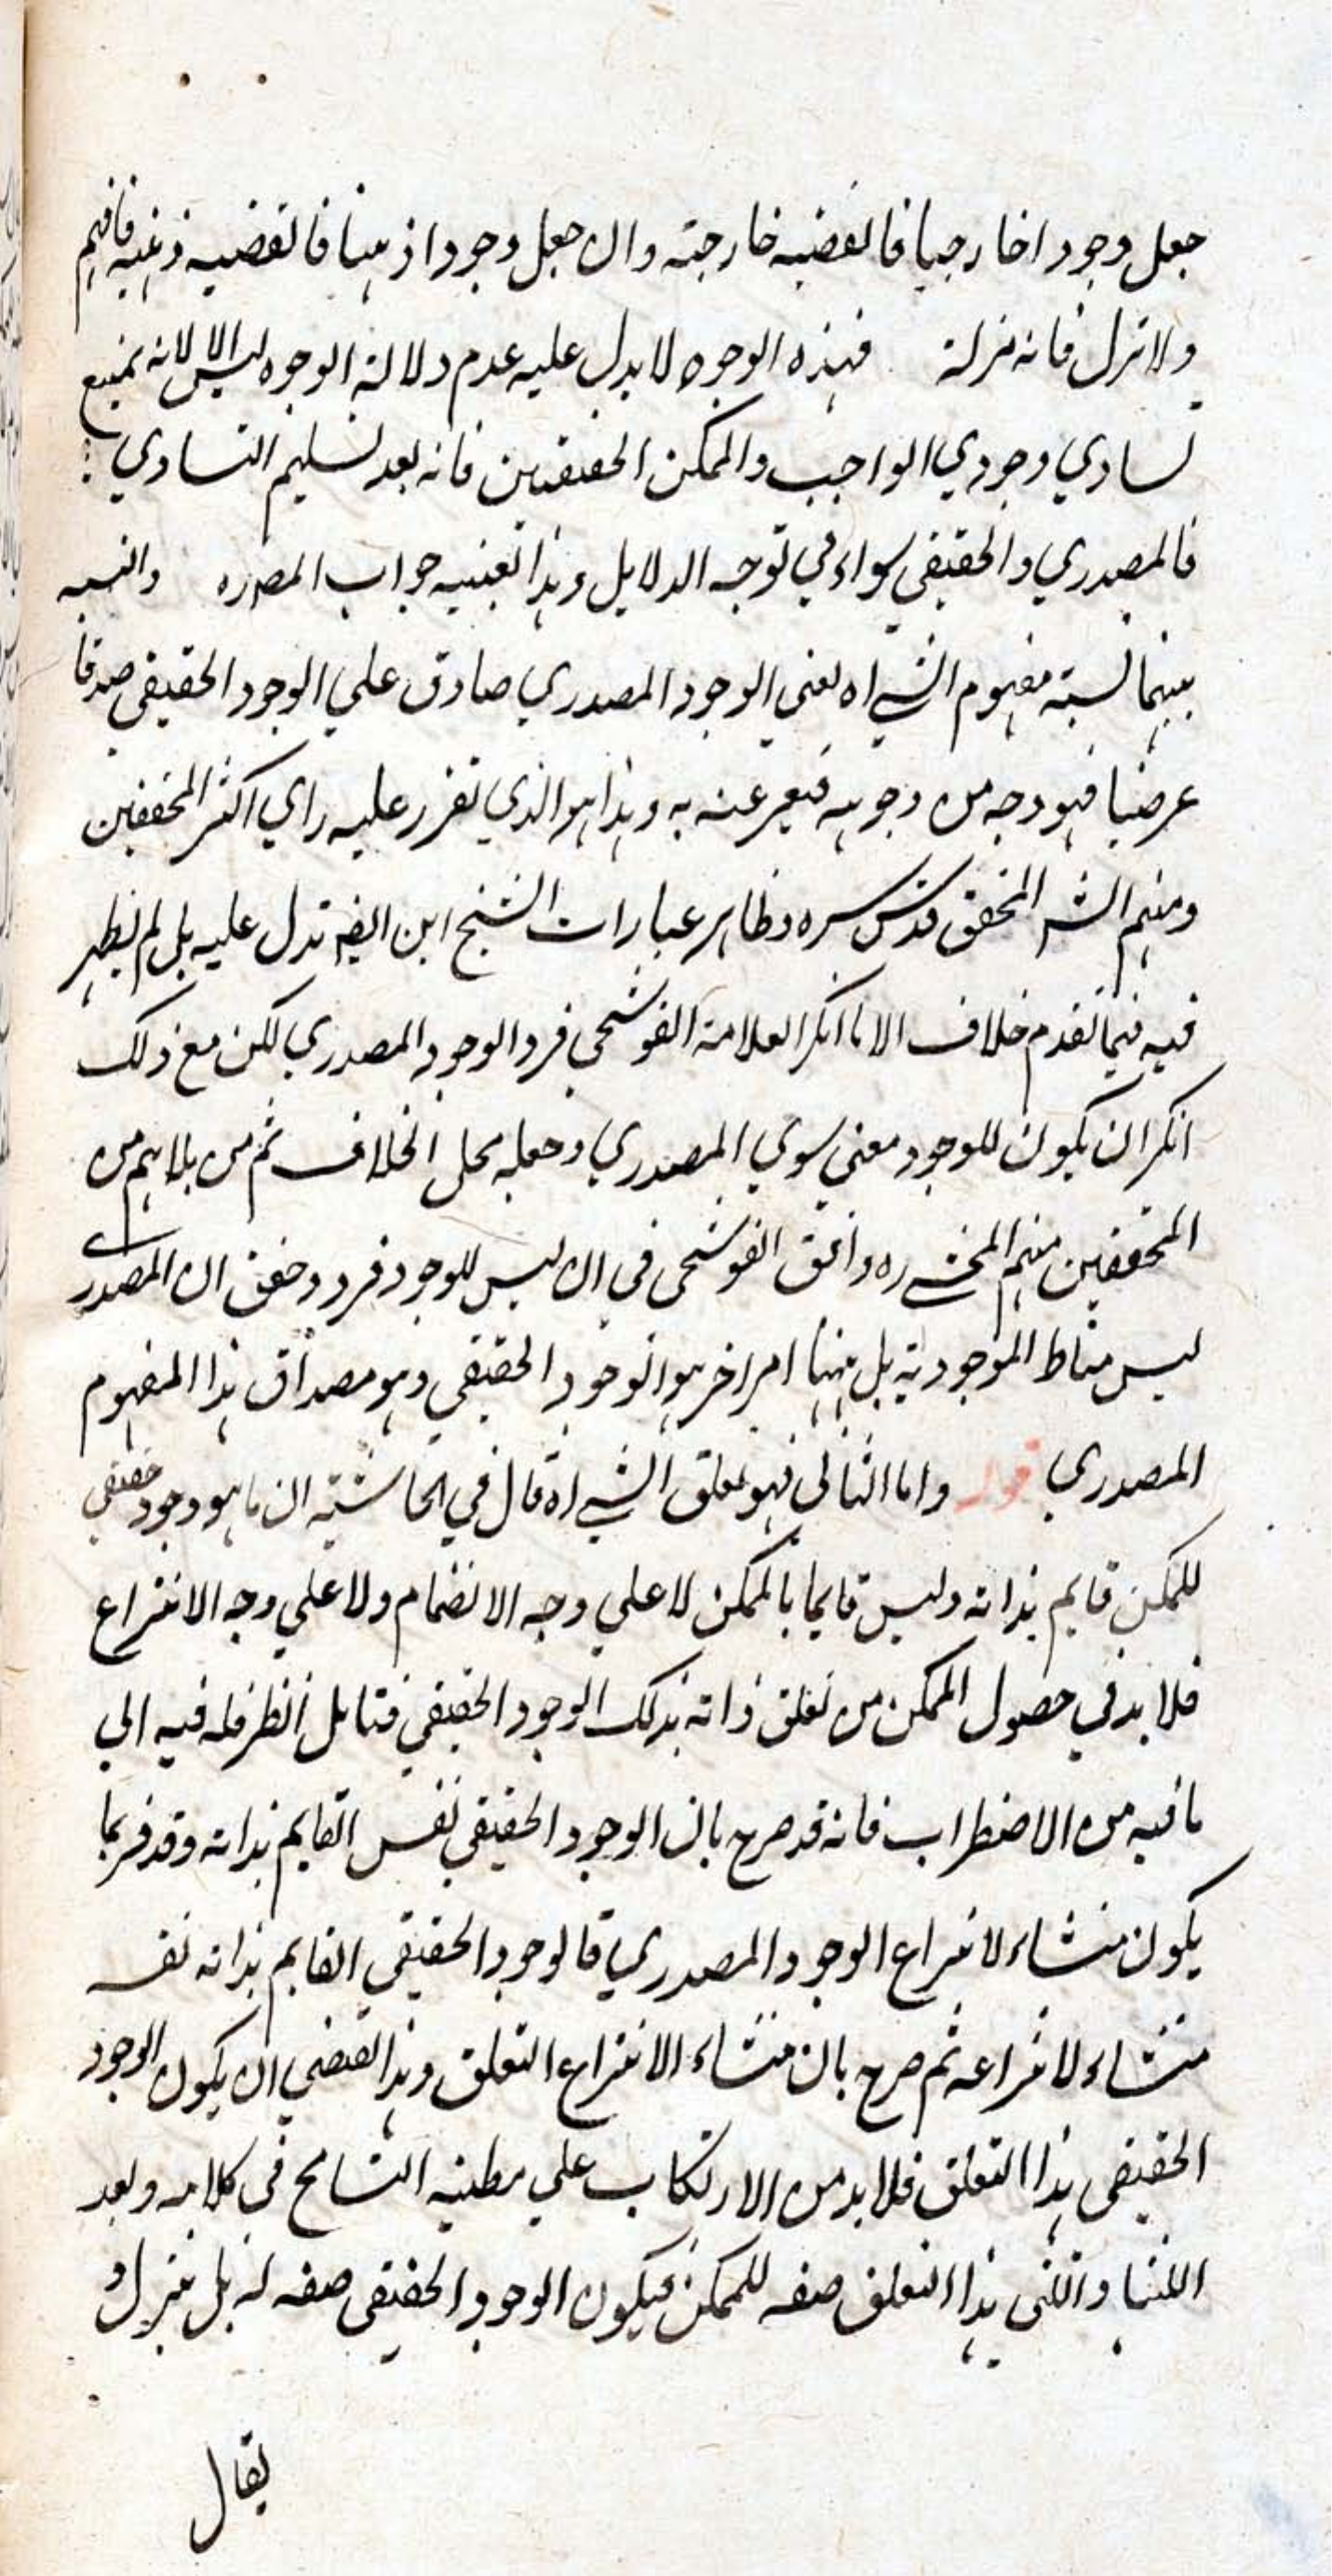 جعل وجودا خارجيا فالقضيه خارجته وان جعل وجودا ذهنيا فالقضيه ذهنيه فافهم
ولا تزل فانه مزلة فهذه الوجوه لا يدل عليه عدم دلالة الوجوه ليس الا لانه يمنع
تساوي وجودي الواجب والممكن الحقيقيين فانه بعد تسليم التساوي
فالمصدري والحقيقي سواء في توجه الدلايل وهذا بعينيه جواب المصدره والنسبه
بينهما نسبته مفهوم الشي اه يعني الوجود المصدري صادق علي الوجود الحقيقي صدقا
عرضيا فهو وجه من وجوهه فيعبر عنه به وهذا هو الذي تقرر عليه راي اكثر المحققين
ومنهم الشه المحقق قدس سره وظاهر عبارات الشيخ ابن ايضه تدل عليه بل لم يظهر
فيه فيما تقدم خلاف الا ما انكر العلامة القوشجي فرد الوجود المصدري لكن مع ذلك
انكر ان يكون للوجود معني سوي المصدري وجعله محل الخلاف ثم من بلاهم من
المحققين منهم المحشي ره وافق القوشجي في ان ليس للوجود فرد وحقق ان المصدري
ليس مناط الموجودية بل ههنا امر اخر هو الوجود الحقيقي وهو مصداق هذا المفهوم
المصدري قوله واما الثاني فهو تعلق الشي اه قال في الحاشية ان ما هو وجود حقيقي
للممكن قايم بذاته وليس قايما بالممكن لا علي وجه الانضمام ولا علي وجه الانتزاع
فلا بد في حصول الممكن من تعلق ذاته بذلك الوجود الحقيقي فتامل انظر فله فيه الي
ما فيه من الاضطراب فانه قد صرح بان الوجود الحقيقي نفس القايم بذاته وقد فر بما
يكون منشاء لانتزاع الوجود المصدري فالوجود الحقيقي القايم بذاته نفسه
منشاء لانتزاعه ثم صرح بان منشاء الانتزاع التعلق وهذا يقتضي ان يكون الوجود
الحقيقي هذا التعلق فلا بد من الارتكاب علي مظنيه التسامح في كلامه وبعد
اللتيا واللتي هذا التعلق صفه للممكن فيكون الوجود الحقيقي صفه له بل نتنزل و
يقال